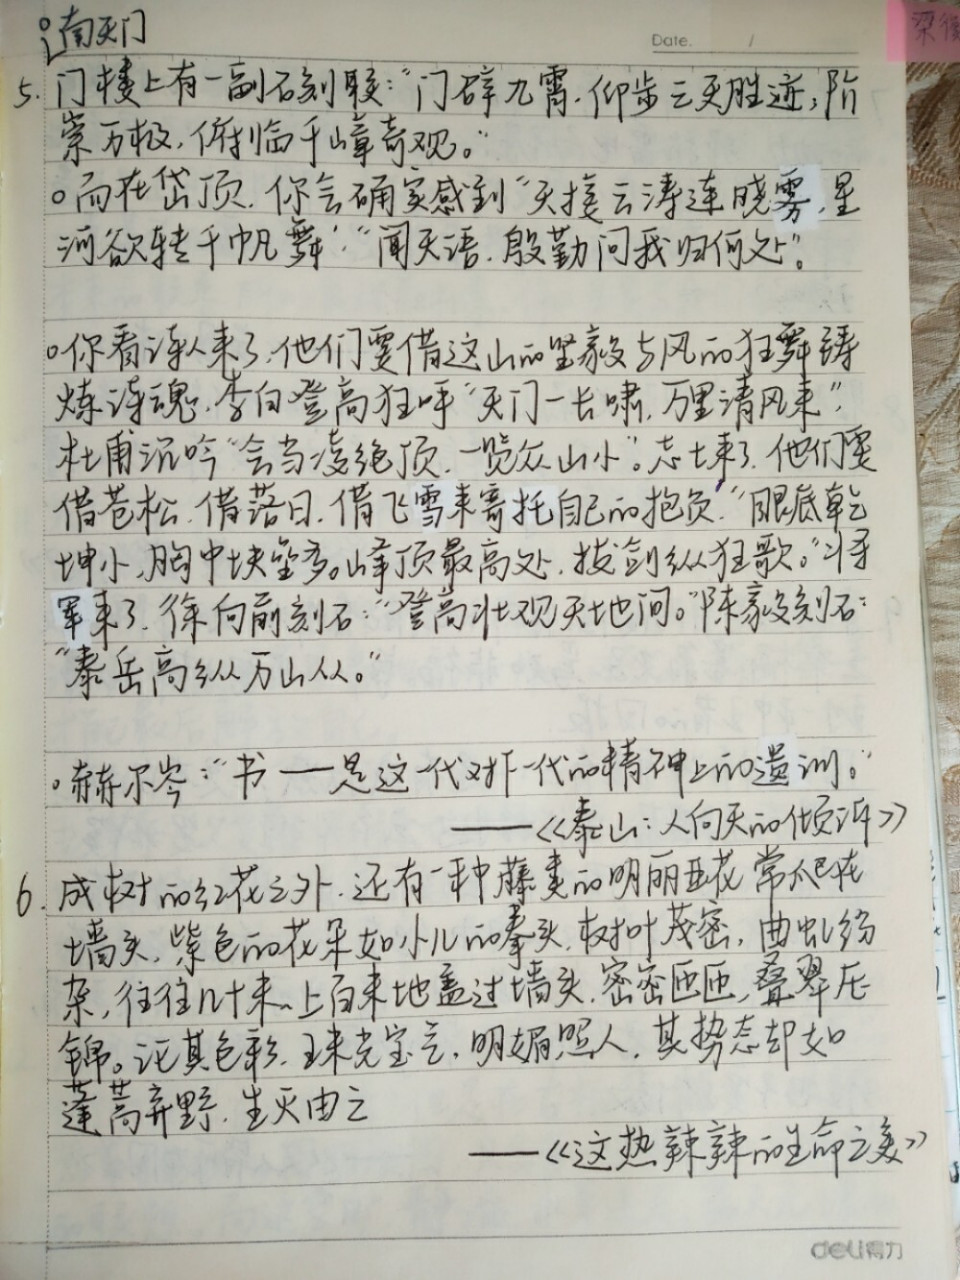 南天门
Date. /
梁衡
5. 门楼上有一副石刻联：“门辟九霄，仰步三天胜迹；阶
崇万极，俯临千嶂奇观。”
而在岱顶，你会确实感到“天接云涛连晓雾，星
河欲转千帆舞”，“闻天语，殷勤问我归何处”。
你看诗人来了，他们要借这山的坚毅与风的狂舞铸
炼诗魂，李白登高狂呼“天门一长啸，万里清风来”，
杜甫沉吟“会当凌绝顶，一览众山小”。志士来了，他们要
借苍松，借落日，借飞雪来寄托自己的抱负，“眼底乾
坤小，胸中块垒多。峰顶最高处，拔剑纵狂歌。”将
军来了，徐向前刻石：“登高壮观天地间。”陈毅刻石：
“泰岳高纵万山从。”
赫尔岑：“书——是这一代对下一代的精神上的遗训。”
——《泰山：人向天的倾诉》
6. 成树的红花之外，还有一种藤类的明丽亚花常爬在
墙头，紫色的花朵如小儿的拳头，树叶茂密，曲虬纷
杂，往往几十米、上百米地盖过墙头，密密匝匝，叠翠压
锦。论其色彩，珠光宝气，明媚照人，其势态却如
蓬蒿弃野，生灭由之
——《这热辣辣的生命之美》
deli得力